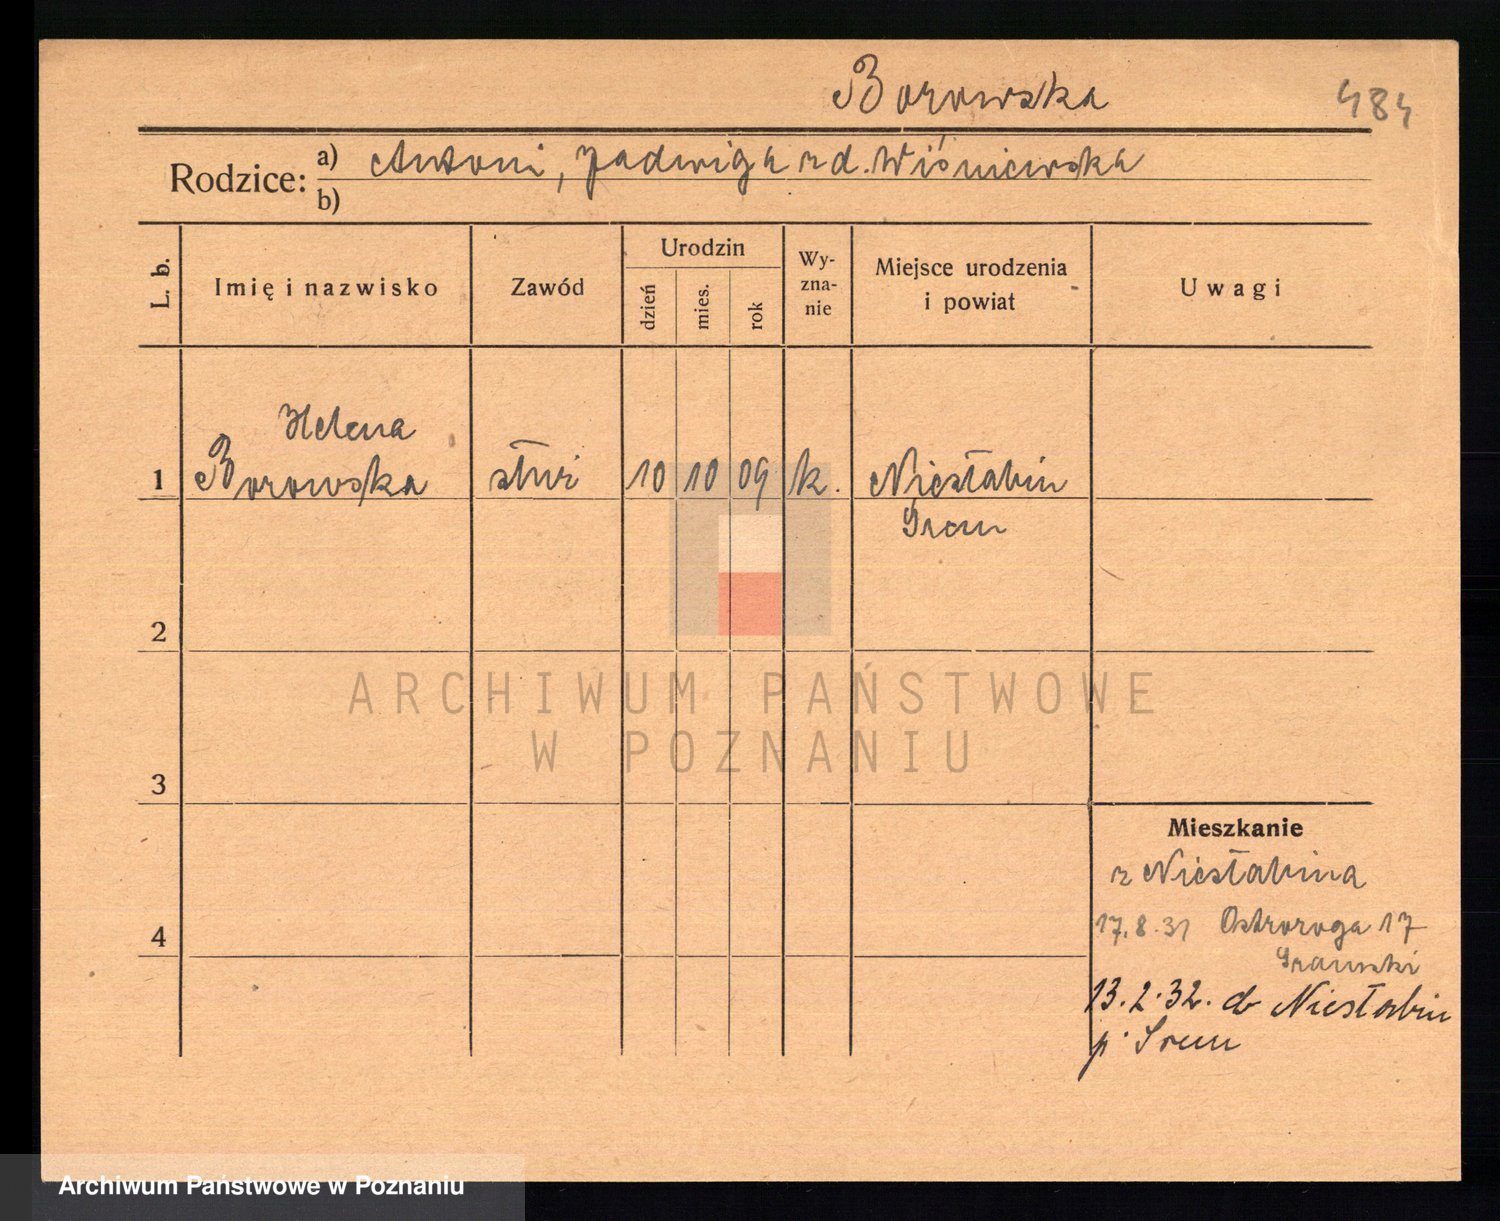 Borowska 484
Rodzice: a) Antoni, Jadwiga zd. Wiśniewska
b)
L. b. Imię i nazwisko Zawód Urodzin dzień mies. rok Wy-zna-nie Miejsce urodzenia i powiat Uwagi
Helena
1 Borowska służ 10 10 09 k. Niesłabin
Śrem
2
ARCHIWUM PAŃSTWOWE
W POZNANIU
3
Mieszkanie
z Niesłabina
4 17.8.31 Ostroroga 17
13.2.32. do Niesłabin
p. Śrem
Archiwum Państwowe w Poznaniu